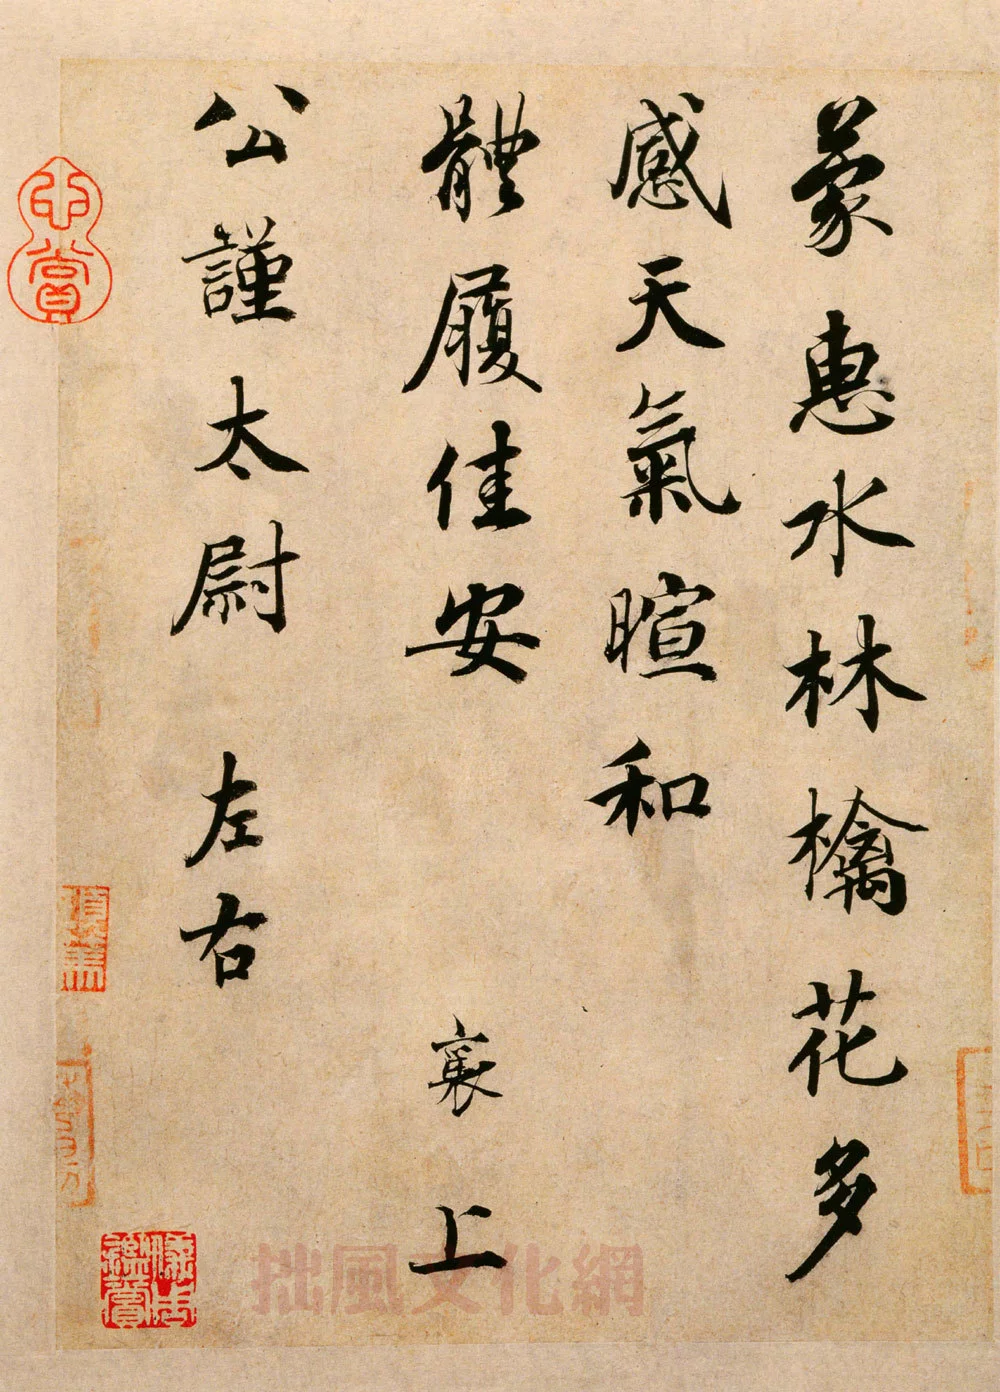 蒙惠水林檎花多
感天氣暄和
體履佳安 襄上
公謹太尉 左右
心賞
儀周鑑賞
拙風文化網